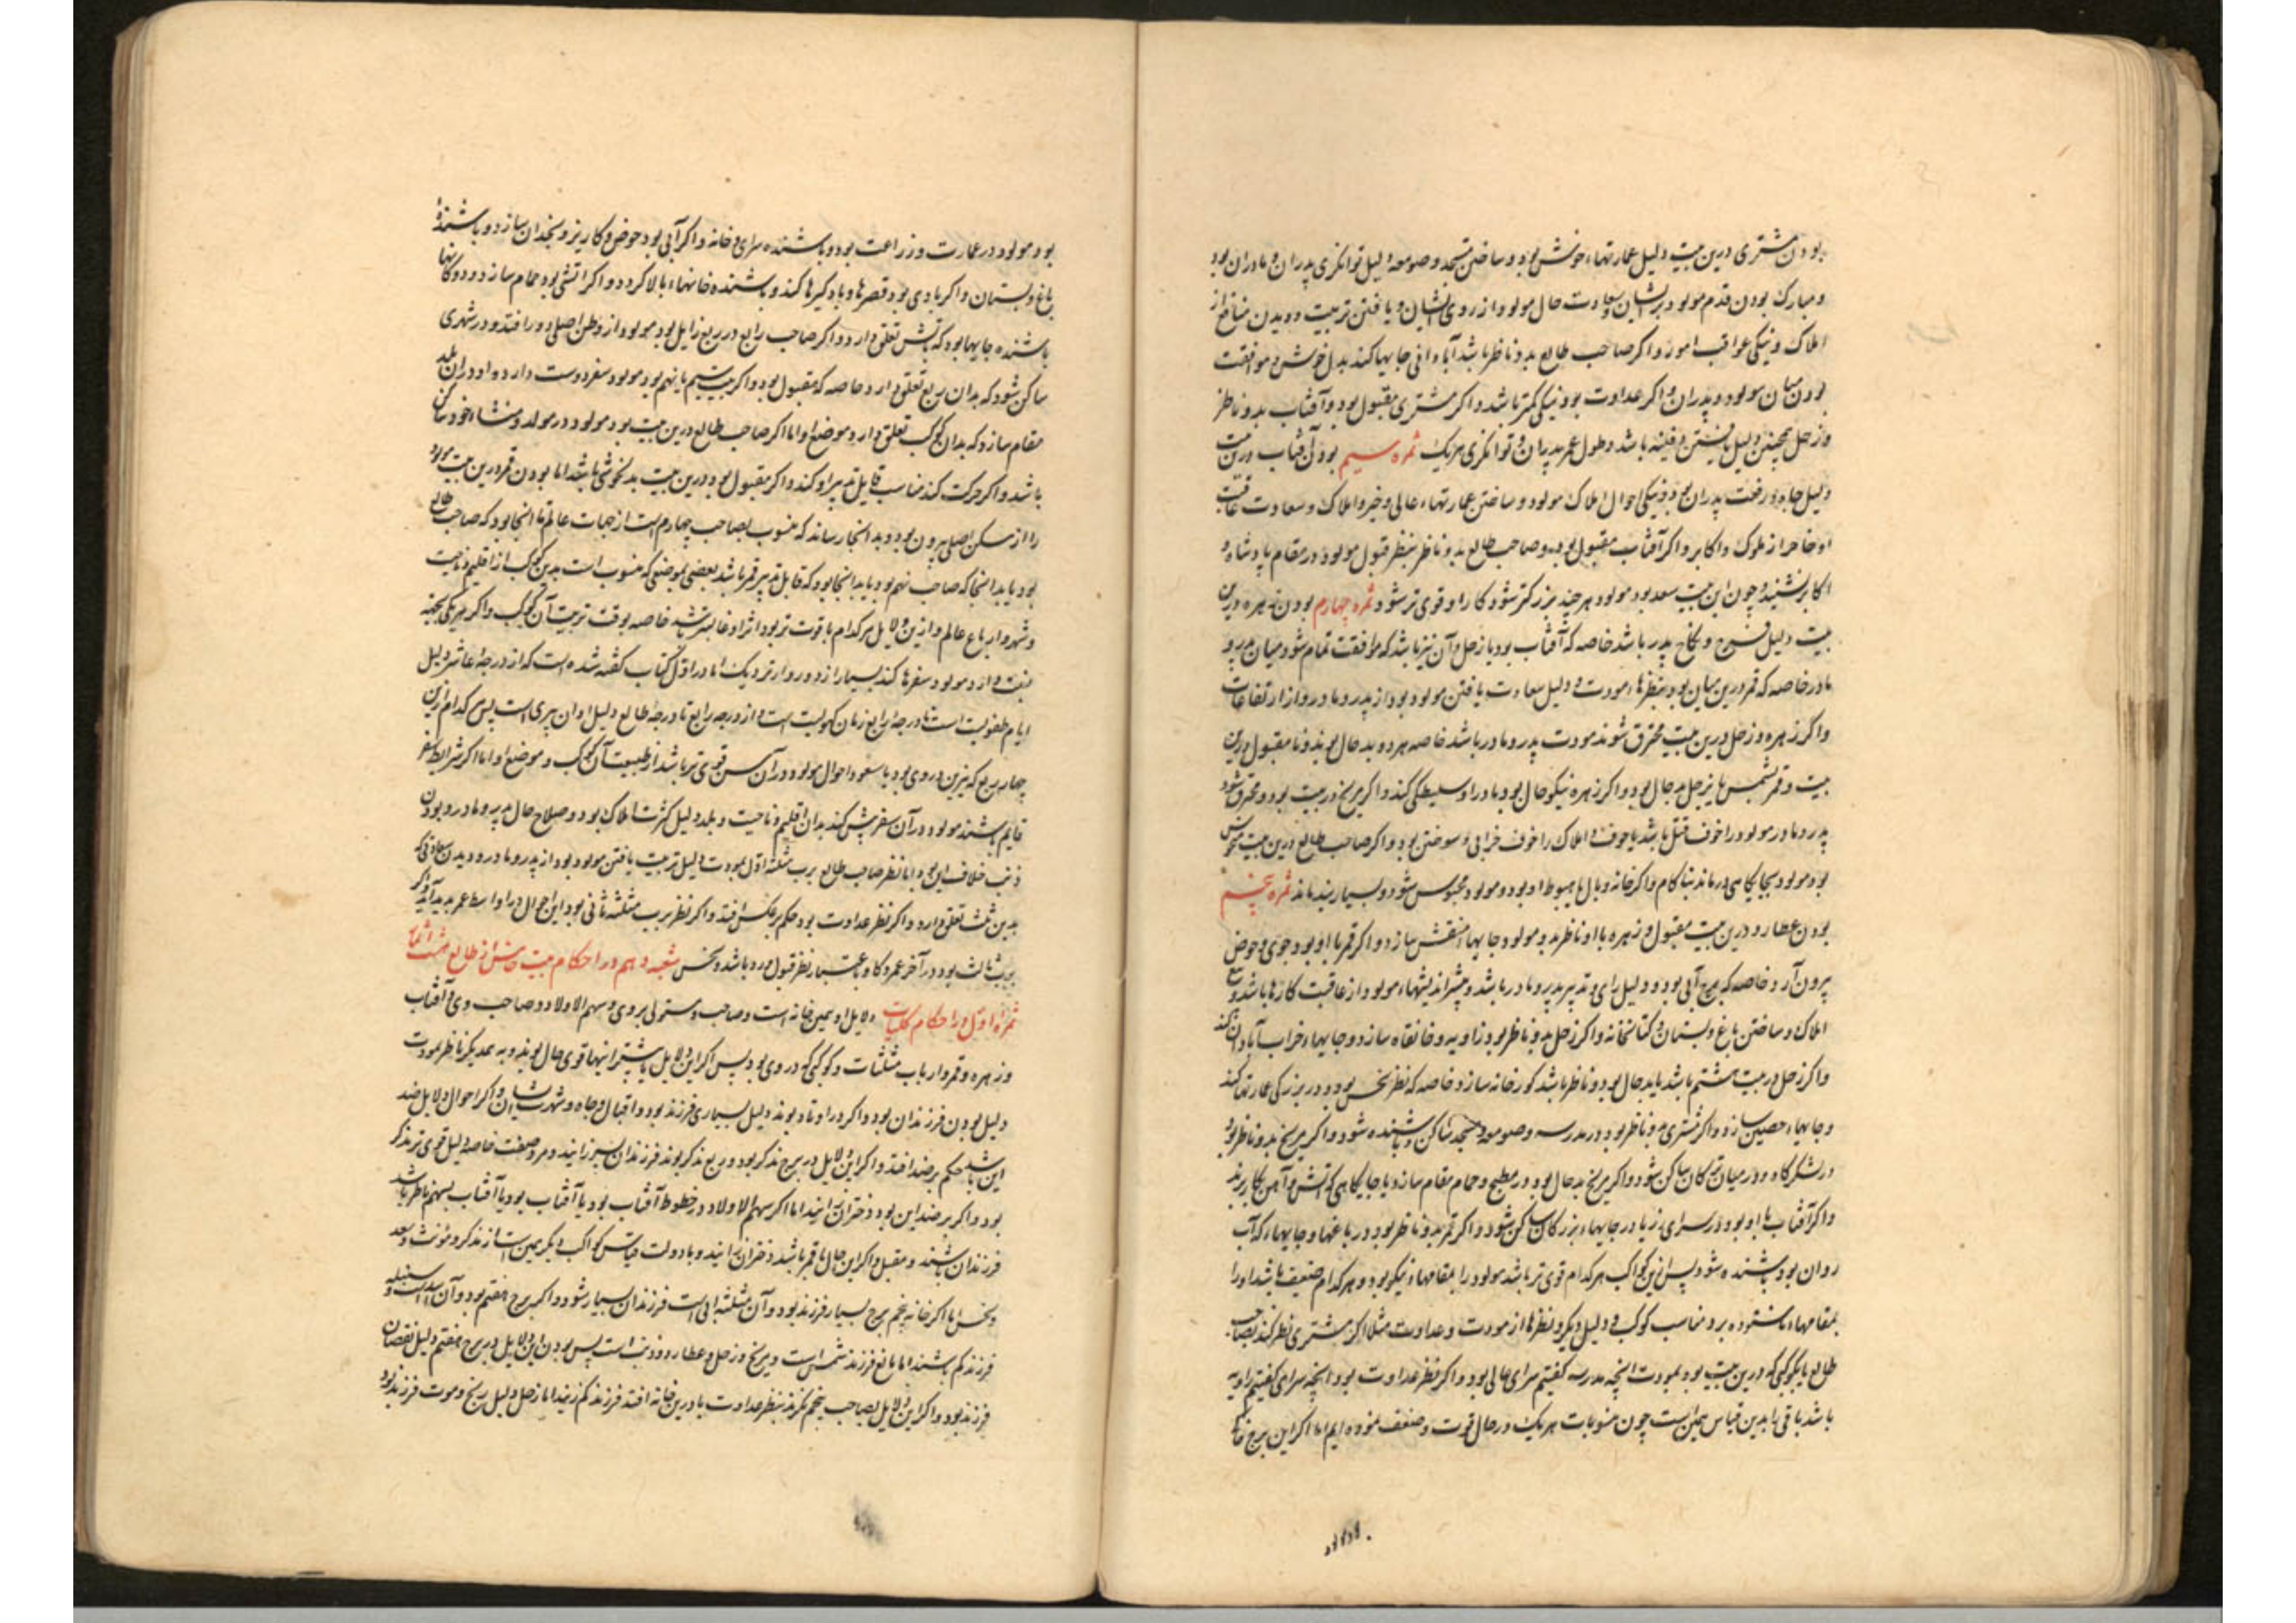 بودن مشتری درین بیت دلیل عمارتهاء خوش بود و ساختن مسجد و صومعه و دلیل توانکری پدران و مادران بود
و مبارک بودن قدم مولود بر ایشان و سعادت حال مولود از روی ایشان و یافتن تربیت و دیدن منافع از
املاک و نیکی عواقب امور و اکر صاحب طالع بدو ناظر باشد آبادانی جایها کند بدل خوش و موافقت
بودن میان مولود و پدران و اکر عداوت بود نیکی کمتر باشد و اکر مشتری مقبول بود و آفتاب بدو ناظر
و زحل همچنین دلیل یافتن دفینه باشد و طول عمر پدران و توانکری هر یک ثمره سیم بودن آفتاب درین بیت
دلیل جاه و رفعت پدران بود و نیکی احوال املاک مولود و ساختن عمارتهاء عالی و خیر و املاک و سعادت عاقبت
او خاصه از ملوک و اکابر و اکر آفتاب مقبول بود و صاحب طالع بدو ناظر بنظر قبول مولود در مقام پادشاه و
اکابر نشیند و چون این بیت سعد بود مولود هر چند بزرکتر شود کار او قوی تر شود ثمره چهارم بودن زهره درین
بیت دلیل فرح و نکاح پدر باشد خاصه که آفتاب بود یا زحل و آن نیز باشد که موافقت تمام شود میان پدر و
مادر خاصه که قمر درین میان بود بنظرهاء مودت و دلیل سعادت یافتن مولود بود از پدر و مادر و از ارتفاعات
و اکر زهره و زحل درین بیت محترق شوند مودت پدر و مادر باشد خاصه هر دو بد حال بوند و نامقبول درین
بیت و قمر بشمس یا بزحل بد حال بود و اکر زهره نیکو حال بود مادر او سلیطکی کند و اکر مریخ درین بیت بود و محترق شود
پدر و مادر مولود را خوف قتل باشد یا خوف و املاک را خوف خرابی و سوختن بود و اکر صاحب طالع درین بیت منحوس
بود مولود بجایکاهی درماند بناکام و اکر خانه وبال یا هبوط او بود مولود محبوس شود و بسیار بند ماند ثمره پنجم
بودن عطارد درین بیت مقبول و زهره با او ناظر بدو مولود جایهاء منقش سازد و اکر قمر با او بود جوی و حوض
بیرون آرد خاصه که برج آبی بود و دلیل رای و تدبیر پدر و مادر باشد و بیشتر اندیشهاء مولود از عاقبت کارها باشد و
املاک و ساختن باغ و بستان و کتابخانه و اکر زحل بدو ناظر بود زاویه و خانقاه سازد و جایهاء خراب آبادان کند
و اکر زحل در بیت هشتم باشد یا بد حال بود و ناظر باشد کورخانه سازد خاصه که نظر نحس بود و در بزرکی عمارتها کند
و جایهاء حصین سازد و اکر مشتری بدو ناظر بود در مدرسه و صومعه و مسجد ساکن و باشنده شود و اکر مریخ بدو ناظر بود
در لشکرکاه و در میان ترکان ساکن شود و اکر مریخ بد حال بود در مطبخ و حمام مقام سازد یا جایکاهی که آتش و آهن بکار برند
و اکر آفتاب با او بود در سرای زیبا در جایهاء بزرکان ساکن شود و اکر قمر بدو ناظر بود در باغها و جایهاء که آب
روان بود باشنده شود پس ازین کواکب هر کدام قوی تر باشد مولود را بمقامهاء نیکو برد و هر کدام ضعیف باشد او را
بمقامهاء ناستوده برد مناسب کوکب و دلیل دیکر و نظرها از مودت و عداوت مثلا اکر مشتری نظر کند بصاحب
طالع یا بکوکبی که درین بیت بود بمودت انچه مدرسه کفتیم سرای عالی بود و اکر نظر عداوت بود انچه سرای کفتیم زاویه
باشد باقی را بدین قیاس همین است چون منسوبات هر یک در حال قوت و ضعف نموده ایم اما اکر این برج خاکی
بود مولود در عمارت و زراعت بود و باشنده سرای و خانه و اکر آبی بود حوض و کاریز و یخدان سازد و باشنده
باغ و بستان و اکر بادی بود قصرها و بادکیرها کند و باشنده خانهاء بالا کردد و اکر آتشی بود حمام سازد و دوکانها
باشنده جایها بود که بآتش تعلق دارد و اکر صاحب رابع در ربع زایل بود مولود از وطن اصلی دور افتد و در شهری
ساکن شود که بدان ربع تعلق دارد خاصه که مقبول بود و اکر بیت سیم یا نهم بود مولود سفر دوست دارد و او در آن بلد
مقام سازد که بدان کوکب تعلق دارد و موضع او اما اکر صاحب طالع درین بیت بود مولود در مولد و منشاء خود ساکن
باشد و اکر حرکت کند مناسب قابل تدبیر او کند و اکر مقبول بود درین بیت بدلخوشی باشد اما بودن قمر درین بیت مولود
را از مسکن اصلی بیرون بود و بدانجا رساند که منسوب بصاحب چهارم است از جهات عالم تا انجا بود که صاحب طالع
بود یا بدانجا که صاحب نهم بود یا بدانجا بود که قابل تدبیر قمر باشد یعنی بموضعی که منسوب است بدین کوکب از اقلیم و ناحیت
و شهر و ارباع عالم و ازین دلایل هر کدام با قوت تر بود اثر او غالبتر باشد خاصه بوقت تربیت آن کوکب و اکر هر یکی بجهتی
بیفتد از مولود سفرها کند بسیار از دور و از نزدیک اما در اول کتاب کفته شده است که از درجه عاشر دلیل
ایام طفولیت است تا درجه رابع زمان کهولیت است و از درجه رابع تا درجه طالع دلیل اوان پیری است پس کدام ازین
چهار ربع که نیرین در وی بود یا سعود احوال مولود در آن سن قوی تر باشد از طبیعت آن کوکب و موضع او اما اکر شرایط سفر
قایم باشند مولود در آن سفر پیش کند بدان اقلیم و ناحیت و بلد دلیل کثرت املاک بود و صلاح حال پدر و مادر و بودن
ذنب خلاف این بود اما نظر صاحب طالع برب مثلثه اول بمودت دلیل تربیت یافتن مولود بود از پدر و مادر و دیدن سعادتی که
بدین ثلث تعلق دارد و اکر نظر عداوت بود حکم بر عکس افتد و اکر نظر برب مثلثه ثانی بود این احوال در اواسط عمر پدید آید و اکر
برب ثالث بود در آخر عمر و کار باعتبار نظر قبول و رد باشد و نحس شعبه دهم در احکام بیت خامس از طالع هشت ثمره
ثمره اول در احکام کلیات دلایل او همین خانه است و صاحب و مستولی بر وی و سهم الاولاد و صاحب وی و آفتاب
و زهره و قمر و ارباب مثلثات و کوکبی که در وی بود پس اکر این دلایل یا بیشتر اینها قوی حال بوند و به همدیکر ناظر بمودت
دلیل بودن فرزندان بود و اکر در اوتاد بوند دلیل بسیاری فرزند بود و اقبال و جاه و شهرت ایشان و اکر احوال دلایل ضد
این باشد حکم بر ضد افتد و اکر این دلایل در برج مذکر بود و ربع مذکر بوند فرزندان نرینه زایند و هر وصیفت خاصه دلیل قوی تر مذکر
بود و اکر بر ضد این بود دختران زایند اما اکر سهم الاولاد در خطوط آفتاب بود یا آفتاب بود یا آفتاب بسهم ناظر باشد
فرزندان باشند و مقبل و اکر این حال با قمر باشد دختران زایند و با دولت قیاس کواکب دیکر همین است از مذکر و مؤنث و سعد
و نحس اما اکر خانه پنجم برج بسیار فرزند بود و آن مثلثه آبی است فرزندان بسیار شود و اکر برج عقیم بود و آن اسد است و سنبله
فرزند کم باشند اما مانع فرزند شمس است و مریخ و زحل و عطارد و ذنب است پس بودن این دلایل در برج عقیم دلیل نقصان
فرزند بود و اکر این دلایل بصاحب پنجم نکرند بنظر عداوت یا درین خانه افتد فرزند کم زیند اما زحل دلیل رنج و موت فرزند بود